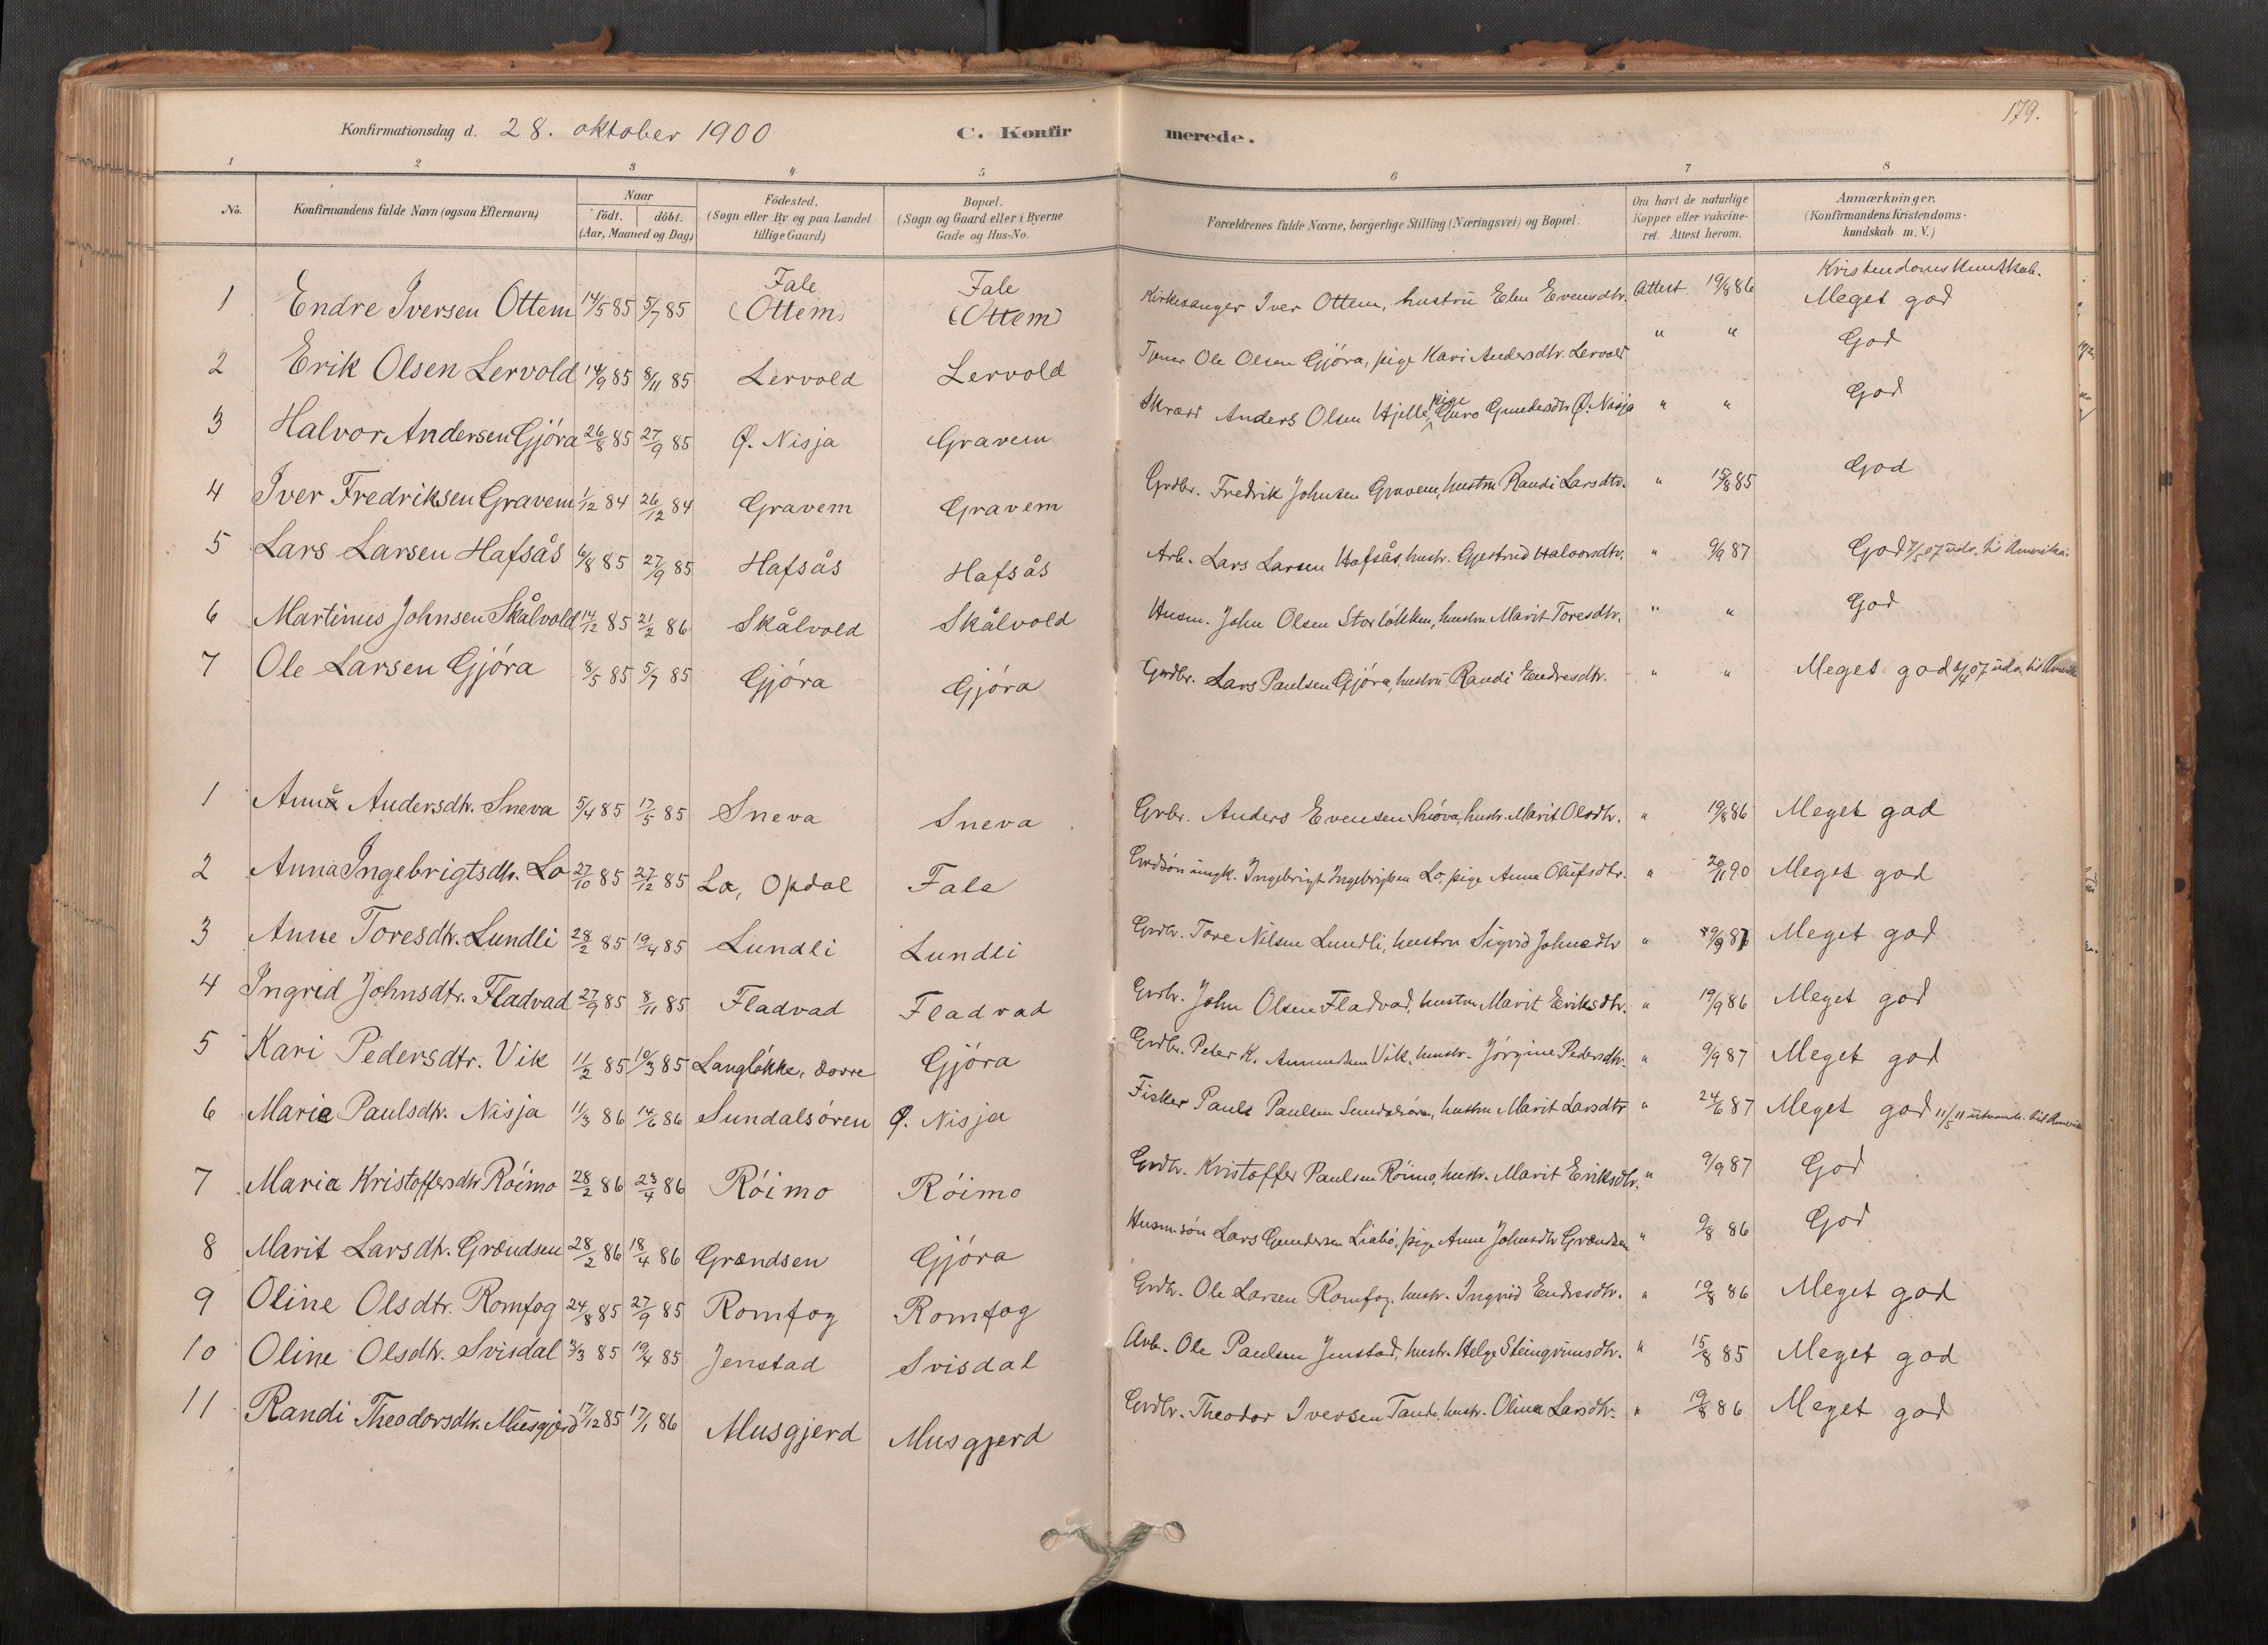 179.
Konfirmationsdag d. 28. oktober 1900 C. Konfirmerede.
1 2 3 4 5 6 7 8
No. Konfirmandens fulde Navn (ogsaa Efternavn) Naar födt. döbt. (Aar, Maaned og Dag) Födested. (Sogn eller By og paa Landet tillige Gaard) Bopæl. (Sogn og Gaard eller i Byerne Gade og Hus-No. Forældrenes fulde Navne, borgerlige Stilling (Næringsvei) og Bopæl. Om havt de naturlige Kopper eller vakcineret. Attest herom. Anmærkninger. (Konfirmandens Kristendomskundskab m. V.)
Kristendomskundskab.
1 Endre Iversen Ottem 14/5 85 5/7 85 Fale (Ottem) Fale (Ottem) Kirkesanger Iver Ottem, hustru Elen Evensdtr. Attest 19/8 86 Meget god
2 Erik Olsen Lervold 14/9 85 8/11 85 Lervold Lervold Tjener Ole Olsen Gjóra, pige Kari Andersdtr. Lervold " " God
3 Halvor Andersen Gjóra 26/8 85 27/9 85 Ø. Nisja Gravem Anders Olsen Hjelle, pige Guro Gundersdtr Ø. Nisja " " God
4 Iver Fredriksen Gravem 1/12 84 26/12 84 Gravem Gravem Grdbr. Fredrik Johnsen Gravem, hustru Randi Larsdtr. " 15/8 85 God
5 Lars Larsen Hafsås 6/8 85 27/9 85 Hafsås Hafsås Arb. Lars Larsen Hafsås, hustr. Gjertrud Halvorsdtr. " 9/9 87 God 7/5 07 udv. til Amerika.
6 Martinus Johnsen Skålvold 14/12 85 21/2 86 Skålvold Skålvold Husm. John Olsen Storlókken, hustru Marit Toresdtr. " " God
7 Ole Larsen Gjóra 8/5 85 5/7 85 Gjóra Gjóra Grdbr. Lars Paulsen Gjóra, hustru Randi Endresdtr. " " Meget god /4 07 udv. til Amerika
1 Anna Andersdtr. Sneva 5/4 85 17/5 85 Sneva Sneva Grbr. Anders Evensen Snøva, hustr. Marit Olsdtr. " 19/8 86 Meget god
2 Anna Ingebrigtsdtr. Lo 27/10 85 27/12 85 Lo, Opdal Fale Grdsón ungk. Ingebrigt Ingebrigtsen Lo, pige Anne Olufsdtr. " 20/11 90 Meget god
3 Anne Toresdtr. Lundli 28/2 85 19/4 85 Lundli Lundli Grdbr. Tore Nilsen Lundli, hustru Sigrid Johnsdtr " 9/9 87 Meget god
4 Ingrid Johnsdtr. Fladvad 27/9 85 8/11 85 Fladvad Fladvad Grdbr. John Olsen Fladvad, hustru Marit Eriksdtr. " 19/9 86 Meget god
5 Kari Pedersdtr. Vik 11/2 85 10/3 85 Langlókke, Dovre Gjóra Grdbr. Peter K. Amundsen Vik, hustr. Jórgine Pedersdtr. " 9/9 87 Meget god
6 Marie Paulsdtr. Nisja 11/3 86 14/6 86 Sundalsóren Ø. Nisja Fisker Paul Paulsen Sundalsóren, hustru Marit Larsdtr " 24/6 87 Meget god 11/5 11 utvandr. til Amerika
7 Maria Kristoffersdtr Róimo 28/2 86 23/4 86 Róimo Róimo Grdbr. Kristoffer Paulsen Róimo, hustr. Marit Eriksdtr. " 9/9 87 God
8 Marit Larsdtr. Grændsen 28/2 86 18/4 86 Grændsen Gjóra Husm.són Lars Gundersen Liabó, pige Anne Johnsdtr Grændsen " 9/8 86 God
9 Oline Olsdtr. Romfog 24/8 85 27/9 85 Romfog Romfog Grdbr. Ole Larsen Romfog, hustr. Ingrid Endresdtr. " 19/8 86 Meget god
10 Oline Olsdtr. Svisdal 3/3 85 19/4 85 Jenstad Svisdal Arb. Ole Paulsen Jenstad, hustr. Helge Steingrimsdtr. " 15/8 85 Meget god
11 Randi Theodorsdtr. Musgjerd 17/12 85 17/1 86 Musgjerd Musgjerd Grdbr. Theodor Iversen Tande, hustr. Olina Larsdtr. " 19/8 86 Meget god